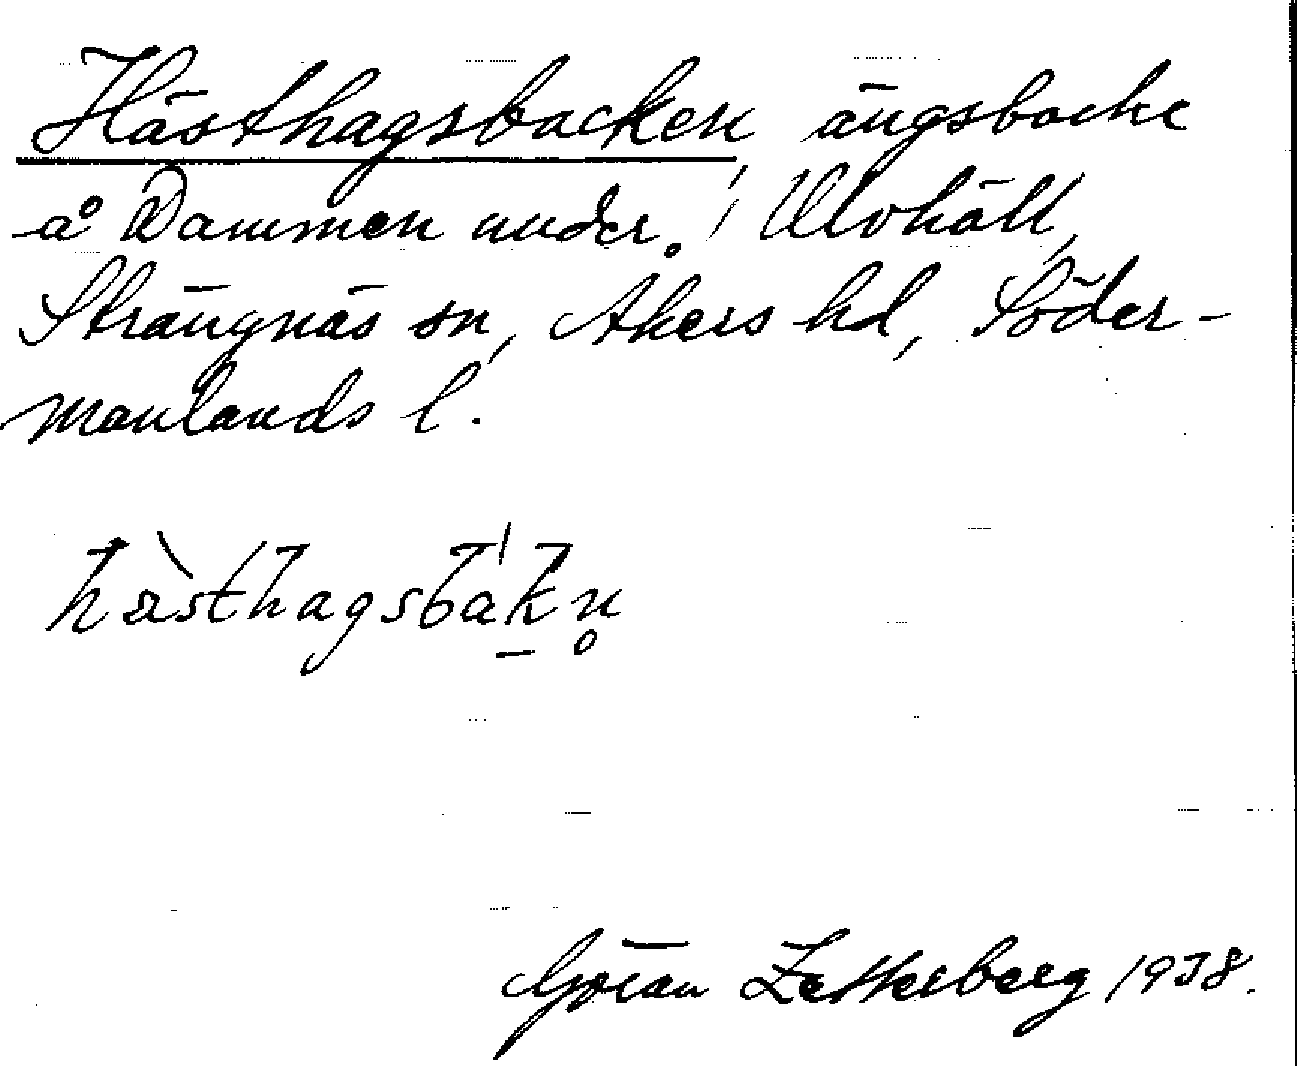 Hästhagsbacken, ängsbacke
å Dammen under Ulvhäll,
Strängnäs sn, Åkers hd, Söder-
manlands l.
hæ̀sthagsbák̠n̥
Göran Zetterberg 1938.